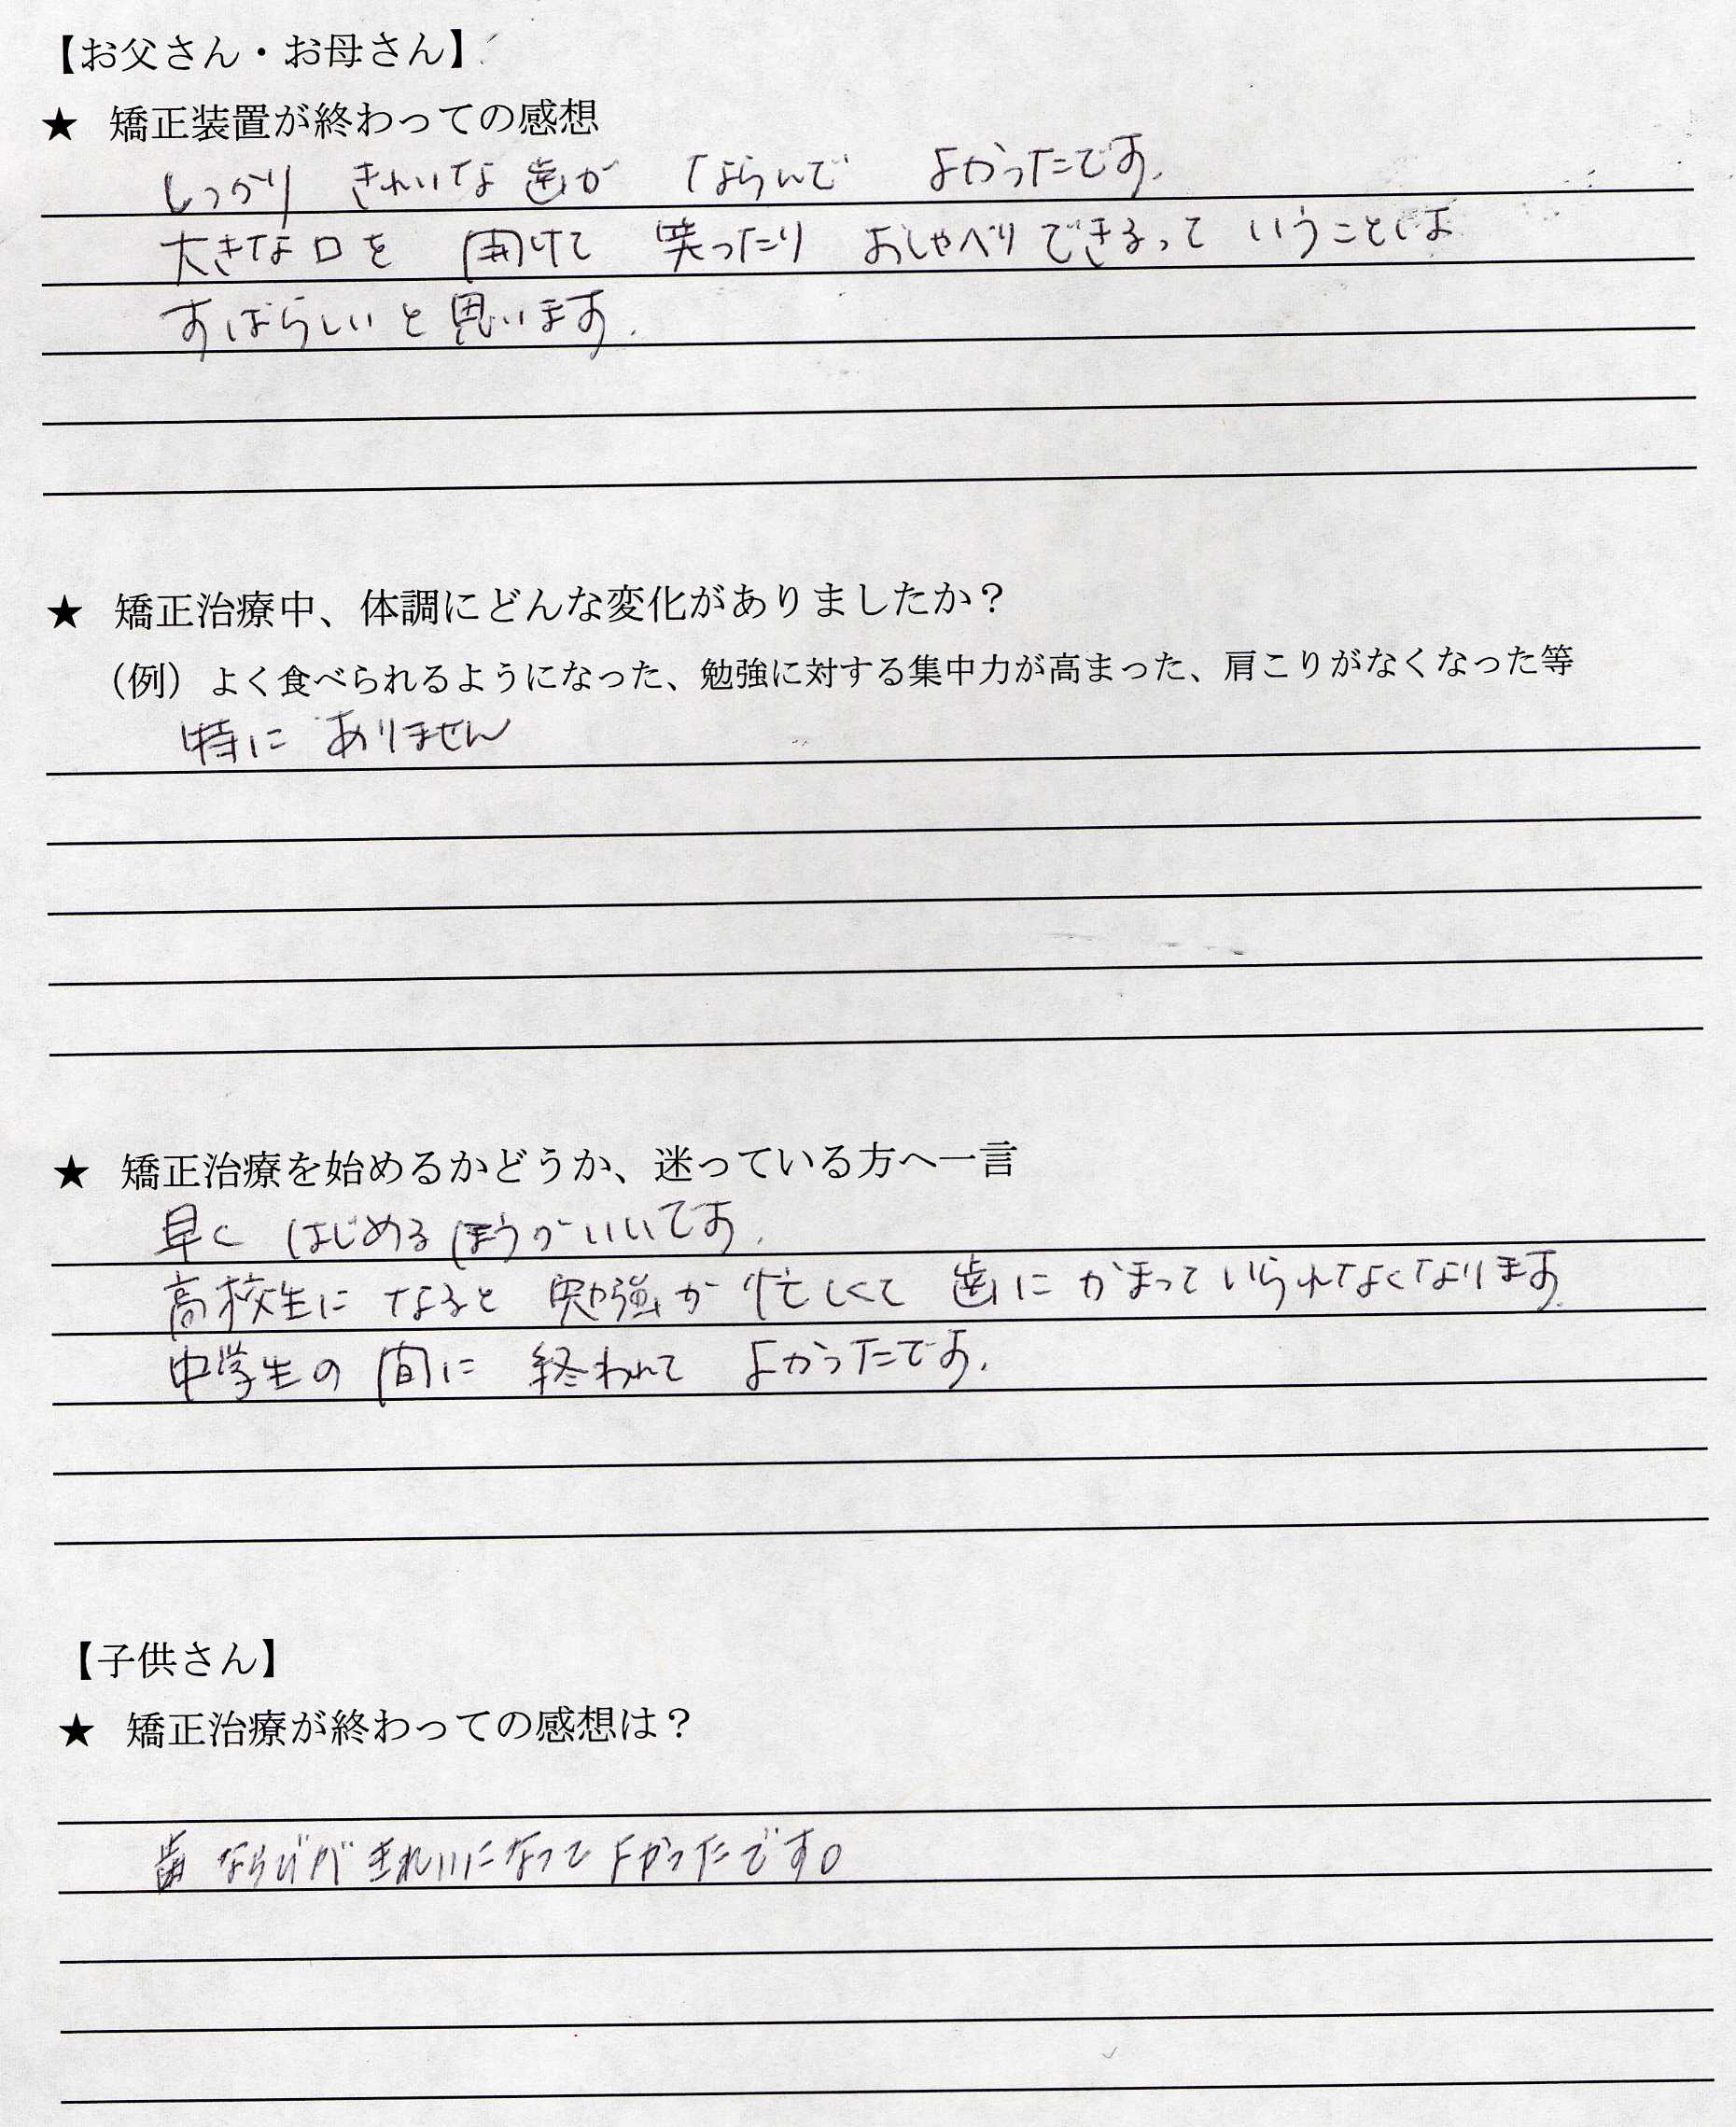 【お父さん・お母さん】
★ 矯正装置が終わっての感想
しっかり きれいな歯が ならんで よかったです.
大きな口を 開けて 笑ったり おしゃべりできるって いうことは
すばらしいと思います.
★ 矯正治療中、体調にどんな変化がありましたか？
（例）よく食べられるようになった、勉強に対する集中力が高まった、肩こりがなくなった等
特に ありません
★ 矯正治療を始めるかどうか、迷っている方へ一言
早く はじめるほうがいいです.
高校生に なると 勉強が 忙しくて 歯に かまって いられなくなります.
中学生の 間に 終われて よかったです.
【子供さん】
★ 矯正治療が終わっての感想は？
歯ならびがきれいになってよかったです。